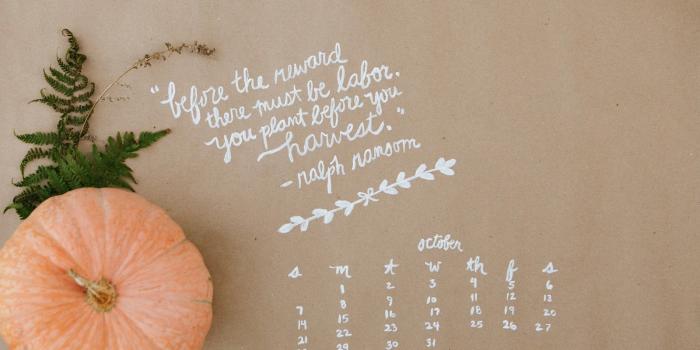 "before the reward
there must be labor.
you plant before you
harvest."
- ralph ransom
october
s m t w th f s
1 2 3 4 5 6
7 8 9 10 11 12 13
14 15 16 17 18 19 20
21 22 23 24 25 26 27
29 30 31